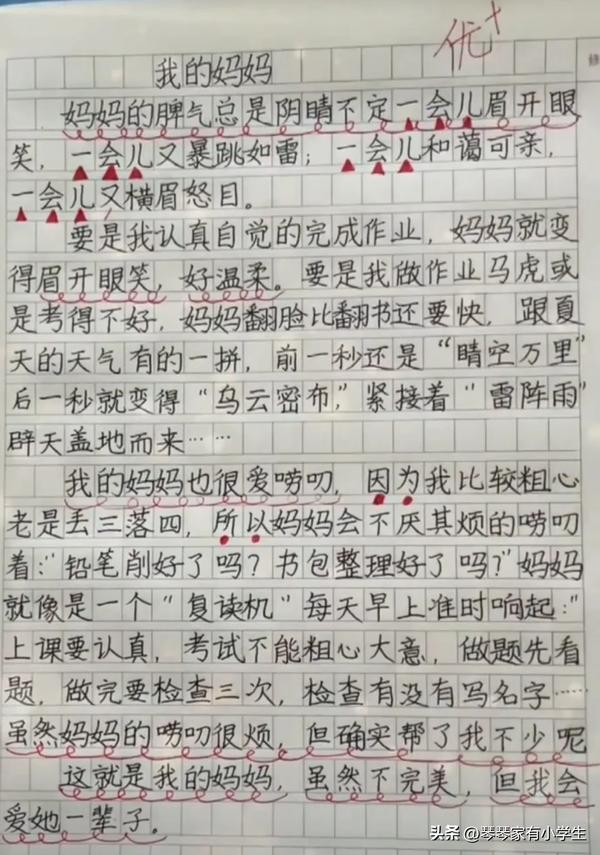 优+
我的妈妈
妈妈的脾气总是阴晴不定一会儿眉开眼
笑，一会儿又暴跳如雷；一会儿和蔼可亲，
一会儿又横眉怒目。
要是我认真自觉的完成作业，妈妈就变
得眉开眼笑，好温柔。要是我做作业马虎或
是考得不好，妈妈翻脸比翻书还要快，跟夏
天的天气有的一拼，前一秒还是“晴空万里”
后一秒就变得“乌云密布”，紧接着“雷阵雨”
辟天盖地而来……
我的妈妈也很爱唠叨，因为我比较粗心
老是丢三落四，所以妈妈会不厌其烦的唠叨
着：“铅笔削好了吗？书包整理好了吗？”妈妈
就像是一个“复读机”每天早上准时响起：“
上课要认真，考试不能粗心大意，做题先看
题，做完要检查三次，检查有没有写名字……
虽然妈妈的唠叨很烦，但确实帮了我不少呢
这就是我的妈妈，虽然不完美，但我会
爱她一辈子。
头条 @琴琴家有小学生